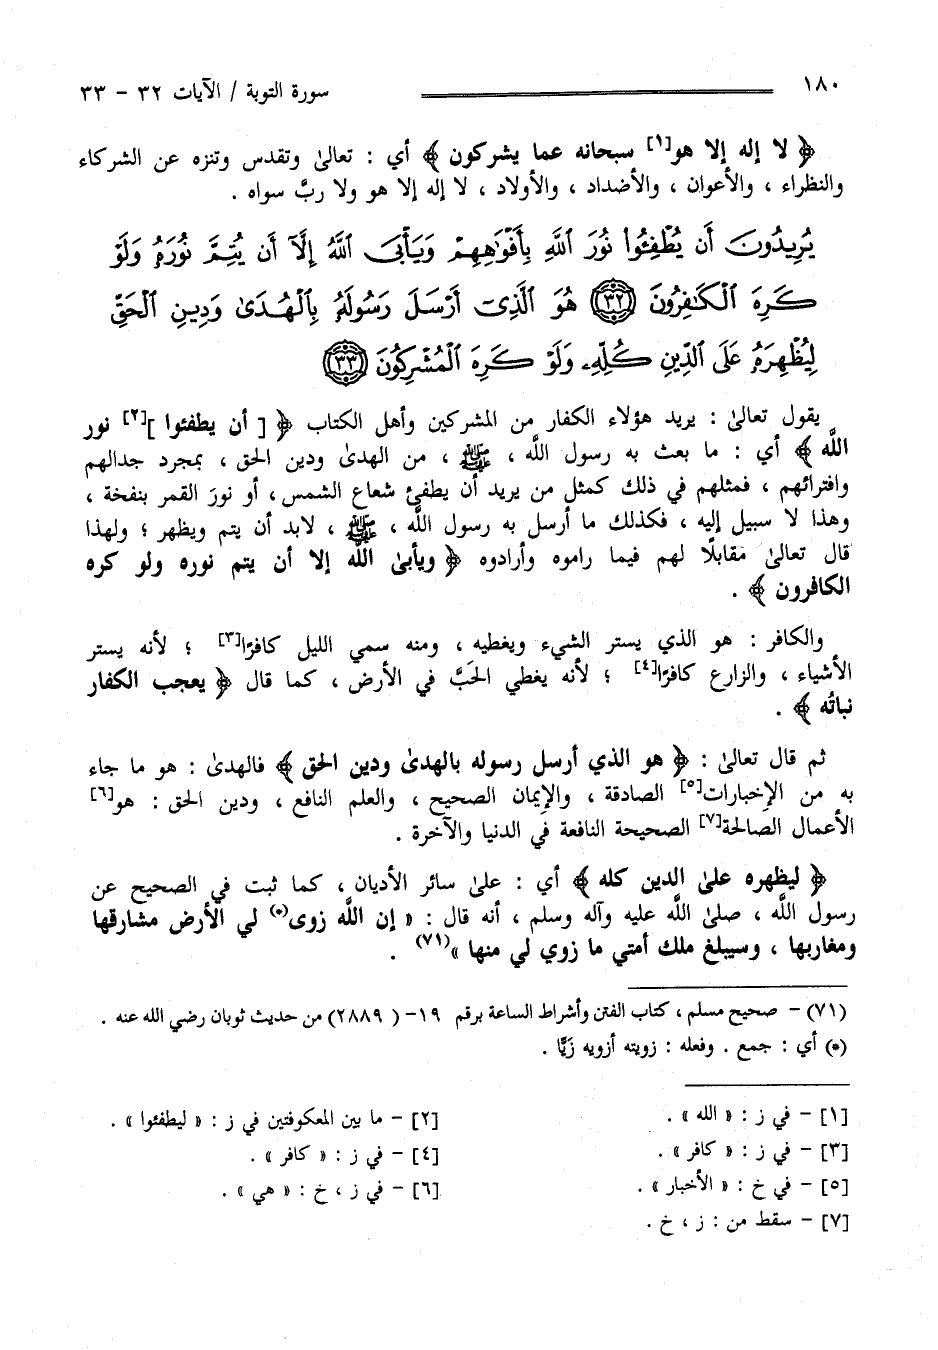 ١٨٠ سورة التوبة / الآيات ٣٢ - ٣٣
﴿ لا إله إلا هو[١] سبحانه عما يشركون ﴾ أي : تعالىٰ وتقدس وتنزه عن الشركاء
والنظراء ، والأعوان ، والأضداد ، والأولاد ، لا إله إلا هو ولا ربَّ سواه .
يُرِيدُونَ أَن يُطْفِئُوا نُورَ ٱللَّهِ بِأَفْوَٰهِهِمْ وَيَأْبَى ٱللَّهُ إِلَّآ أَن يُتِمَّ نُورَهُۥ وَلَوْ
كَرِهَ ٱلْكَٰفِرُونَ ٣٢ هُوَ ٱلَّذِىٓ أَرْسَلَ رَسُولَهُۥ بِٱلْهُدَىٰ وَدِينِ ٱلْحَقِّ
لِيُظْهِرَهُۥ عَلَى ٱلدِّينِ كُلِّهِۦ وَلَوْ كَرِهَ ٱلْمُشْرِكُونَ ٣٣
يقول تعالىٰ : يريد هؤلاء الكفار من المشركين وأهل الكتاب ﴿ [ أن يطفئوا ][٢] نور
اللَّه ﴾ أي : ما بعث به رسول اللَّه ، ﷺ ، من الهدىٰ ودين الحق ، بمجرد جدالهم
وافترائهم ، فمثلهم في ذلك كمثل من يريد أن يطفئ شعاع الشمس، أو نورَ القمر بنفخة ،
وهذا لا سبيل إليه ، فكذلك ما أرسل به رسول اللَّه ، ﷺ ، لابد أن يتم ويظهر ؛ ولهذا
قال تعالىٰ مقابلًا لهم فيما راموه وأرادوه ﴿ ويأبىٰ اللَّه إلا أن يتم نوره ولو كره
الكافرون ﴾ .
والكافر : هو الذي يستر الشيء ويغطيه ، ومنه سمي الليل كافرًا[٣] ؛ لأنه يستر
الأشياء ، والزارع كافرًا[٤] ؛ لأنه يغطي الحَبَّ في الأرض ، كما قال ﴿ يعجب الكفار
نباتُه ﴾ .
ثم قال تعالىٰ : ﴿ هو الذي أرسل رسوله بالهدىٰ ودين الحق ﴾ فالهدىٰ : هو ما جاء
به من الإخبارات[٥] الصادقة ، والإيمان الصحيح ، والعلم النافع ، ودين الحق : هو[٦]
الأعمال الصالحة[٧] الصحيحة النافعة في الدنيا والآخرة .
﴿ ليظهره علىٰ الدين كله ﴾ أي : علىٰ سائر الأديان ، كما ثبت في الصحيح عن
رسول اللَّه ، صلىٰ اللَّه عليه وآله وسلم ، أنه قال : « إن اللَّه زوى(*) لي الأرض مشارقها
ومغاربها ، وسيبلغ ملك أمتي ما زوي لي منها »(٧١) .
(٧١) - صحيح مسلم ، كتاب الفتن وأشراط الساعة برقم ١٩- ( ٢٨٨٩) من حديث ثوبان رضي الله عنه .
(*) أي : جمع . وفعله : زويته أزويه زَيًّا .
[١] - في ز : « الله » . [٢] - ما بين المعكوفتين في ز : « ليطفئوا » .
[٣] - في ز : « كافر » . [٤] - في ز : « كافر » .
[٥] - في خ : « الأخبار » . [٦] - في ز ، خ : « هي » .
[٧] - سقط من : ز ، خ .